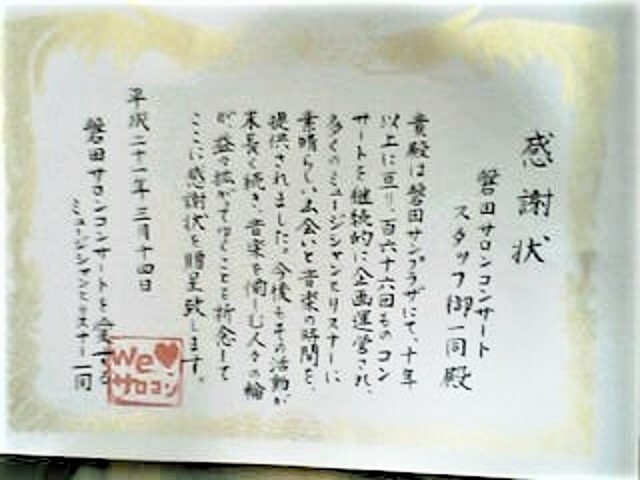 感謝状
磐田サロンコンサート
スタッフ御一同殿
貴殿は磐田サンプラザにて、十年
以上に亘り百六十六回ものコン
サートを継続的に企画運営され、
多くのミュージシャンとリスナーに
素晴らしい出会いと音楽の時間を、
提供されました。今後もその活動が
末長く続き、音楽を愛し む人々の輪
が益々拡がってゆくことを祈念して
ここに感謝状を贈呈致します。
平成二十一年三月十四日
磐田サロンコンサートを愛する
ミュージシャンとリスナー一同
We♥
サロコン